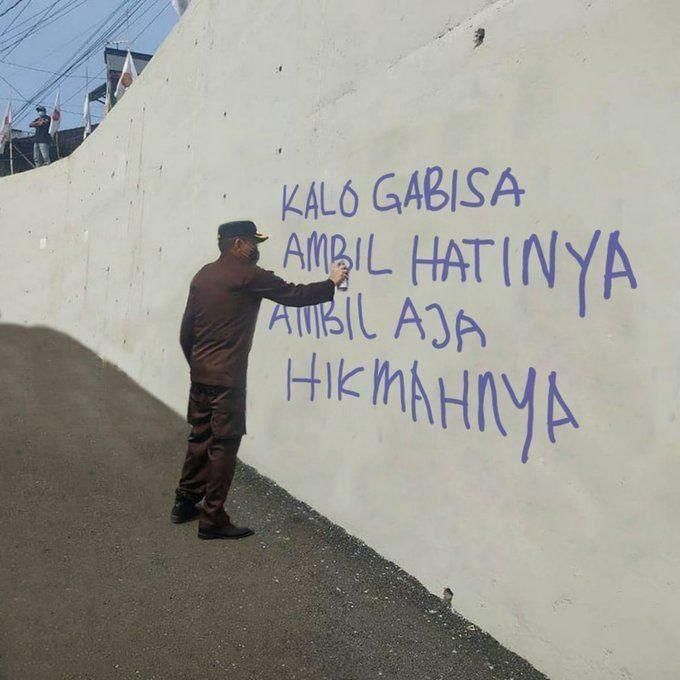 KALO GABISA
AMBIL HATINYA
AMBIL AJA
HIKMAHNYA